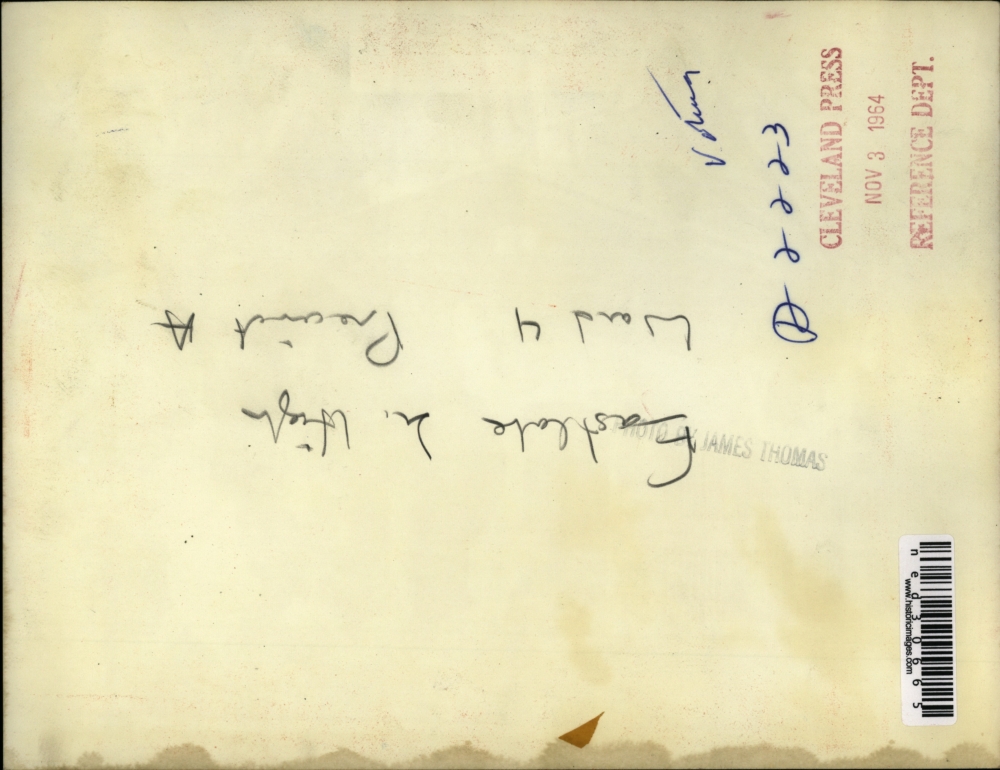 Voting
D-2223
CLEVELAND PRESS
NOV 3 1964
REFERENCE DEPT.
Eastlake Jr. High
Ward 4 Precinct A
PHOTO BY JAMES THOMAS
ned30665
www.historicimages.com